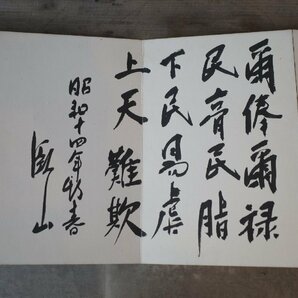 爾俸爾禄
民膏民脂
下民易虐
上天難欺
昭和十四年
山